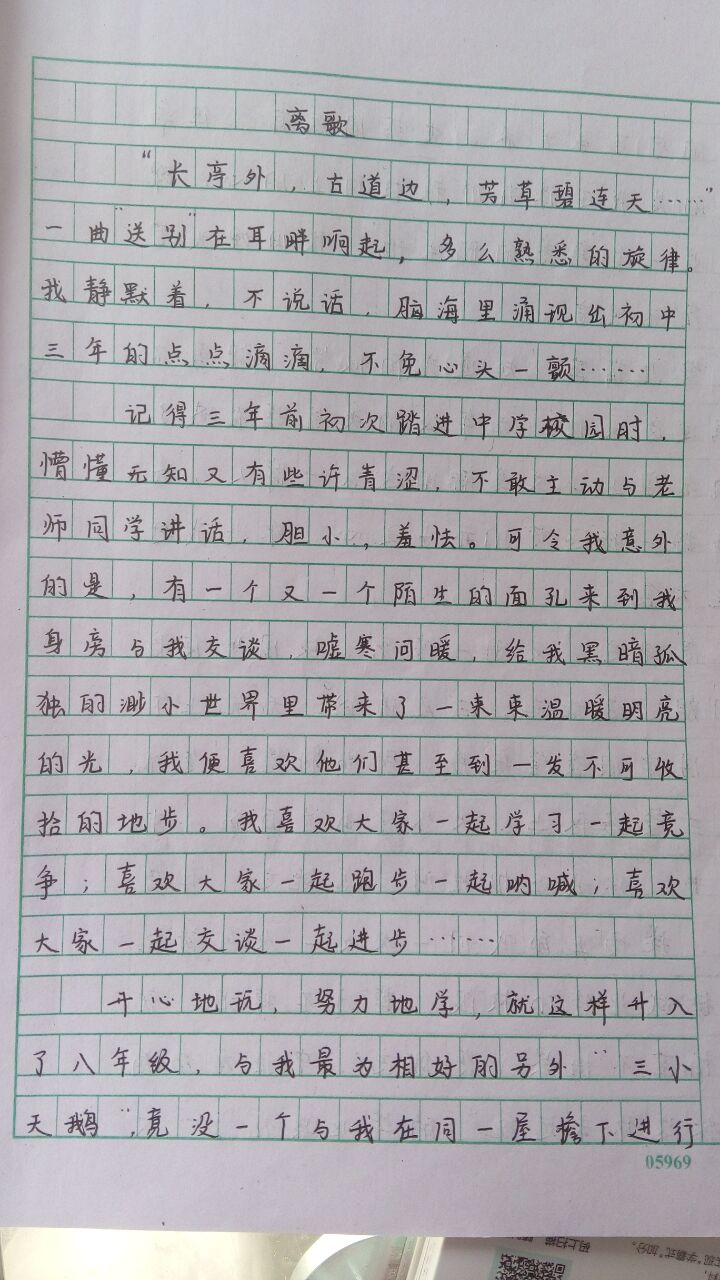 离歌
“长亭外，古道边，芳草碧连天……”
一曲“送别”在耳畔响起，多么熟悉的旋律。
我静默着，不说话，脑海里涌现出初中
三年的点点滴滴，不免心头一颤……
记得三年前初次踏进中学校园时，
懵懂无知又有些许青涩，不敢主动与老
师同学讲话，胆小，羞怯。可令我意外
的是，有一个又一个陌生的面孔来到我
身旁与我交谈，嘘寒问暖，给我黑暗孤
独的渺小世界里带来了一束束温暖明亮
的光，我便喜欢他们甚至到一发不可收
拾的地步。我喜欢大家一起学习一起竞
争；喜欢大家一起跑步一起呐喊；喜欢
大家一起交谈一起进步……
开心地玩，努力地学，就这样升入
了八年级，与我最为相好的另外“三小
天鹅”，竟没一个与我在同一屋檐下进行
05969